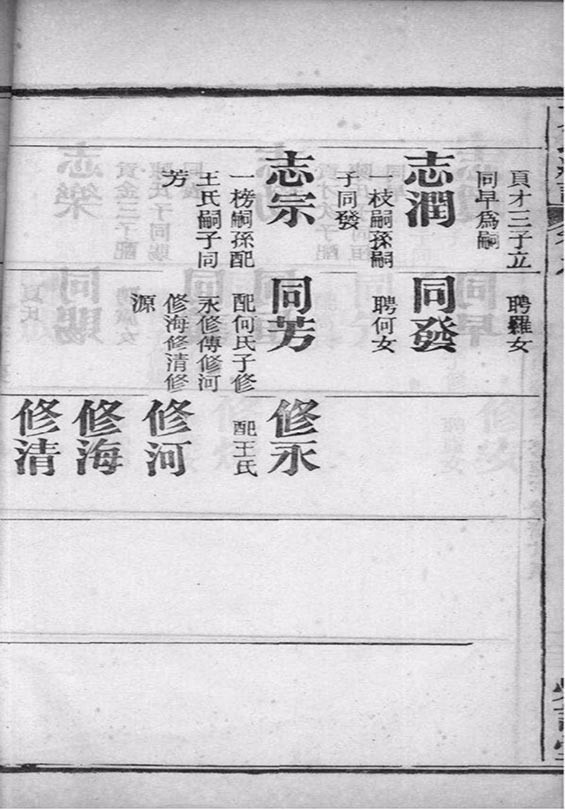 貢才三子立
同早爲嗣
志潤
一枝嗣孫嗣
子同發
志宗
一榜嗣孫配
王氏嗣子同
芳
聘羅女
同發
聘何女
同芳
配何氏子修
永修傳修河
修海修清修
源
修永
配王氏
修河
修海
修清